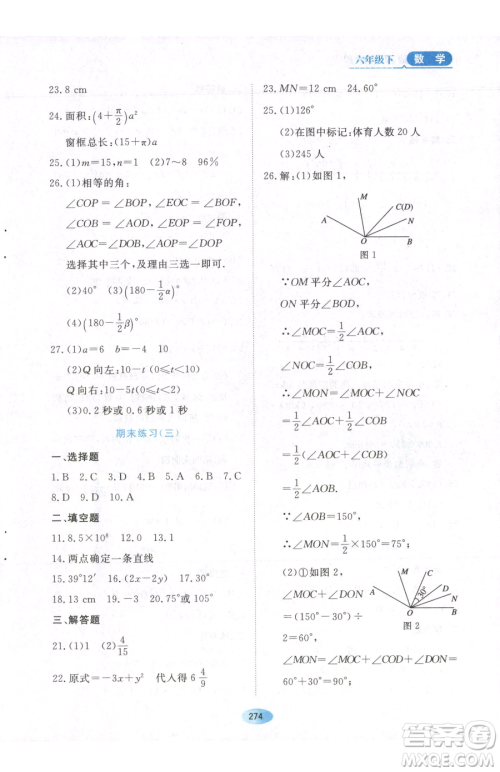 六年级下 数 学
23.8 cm
24.面积:(4+π/2)a²
窗框总长:(15+π)a
25.(1)m=15,n=1 (2)7~8 96%
26.(1)相等的角:
∠COP=∠BOP,∠COE=∠BOF,
∠COB=∠AOD,∠EOP=∠FOP,
∠AOC=∠DOB,∠AOP=∠DOP
选择其中三个,及理由三选一即可.
(2)40° (3)(180-1/2α)°
(4)(180-1/2β)°
27.(1)a=6 b=-4 10
(2)Q向左:10-t(0≤t≤6)
Q向右:10-5t(0≤t≤2)
(3)0.2秒或0.6秒或6秒
期末练习(三)
一、选择题
1.B 2.C 3.D 4.C 5.B 6.C 7.D
8.D 9.D 10.A
二、填空题
11.8.5×10⁶ 12.0 13.1
14.两点确定一条直线
15.39°12′ 16.(2x-2y) 17.2
18.13 cm 19.120° 20.24
三、解答题
21.(1)4 (2)4/15
22.原式=-3x+y² 代入得6 4/9
23.MN=12 cm 24.60°
25.(1)126°
(2)在图中标记:体育人数20人
(3)245人
26.解:(1)如图1,
M
C(D)
A
N
O B
图1
∵OM平分∠AOC,
ON平分∠BOD,
∴∠MOC=1/2∠AOC,
∠NOC=1/2∠COB,
∴∠MON=∠MOC+∠NOC=
1/2∠AOC+1/2∠COB=
1/2∠AOB,
∵∠AOB=150°,
∴∠MON=1/2∠AOB=75°;
(2)①如图2,
∠MOC+∠DON
=(150°-30°)÷
2=60°,
M C
D
30°
A
N
O B
图2
∠MON=∠MOC+∠DON+
30°=90°,
274